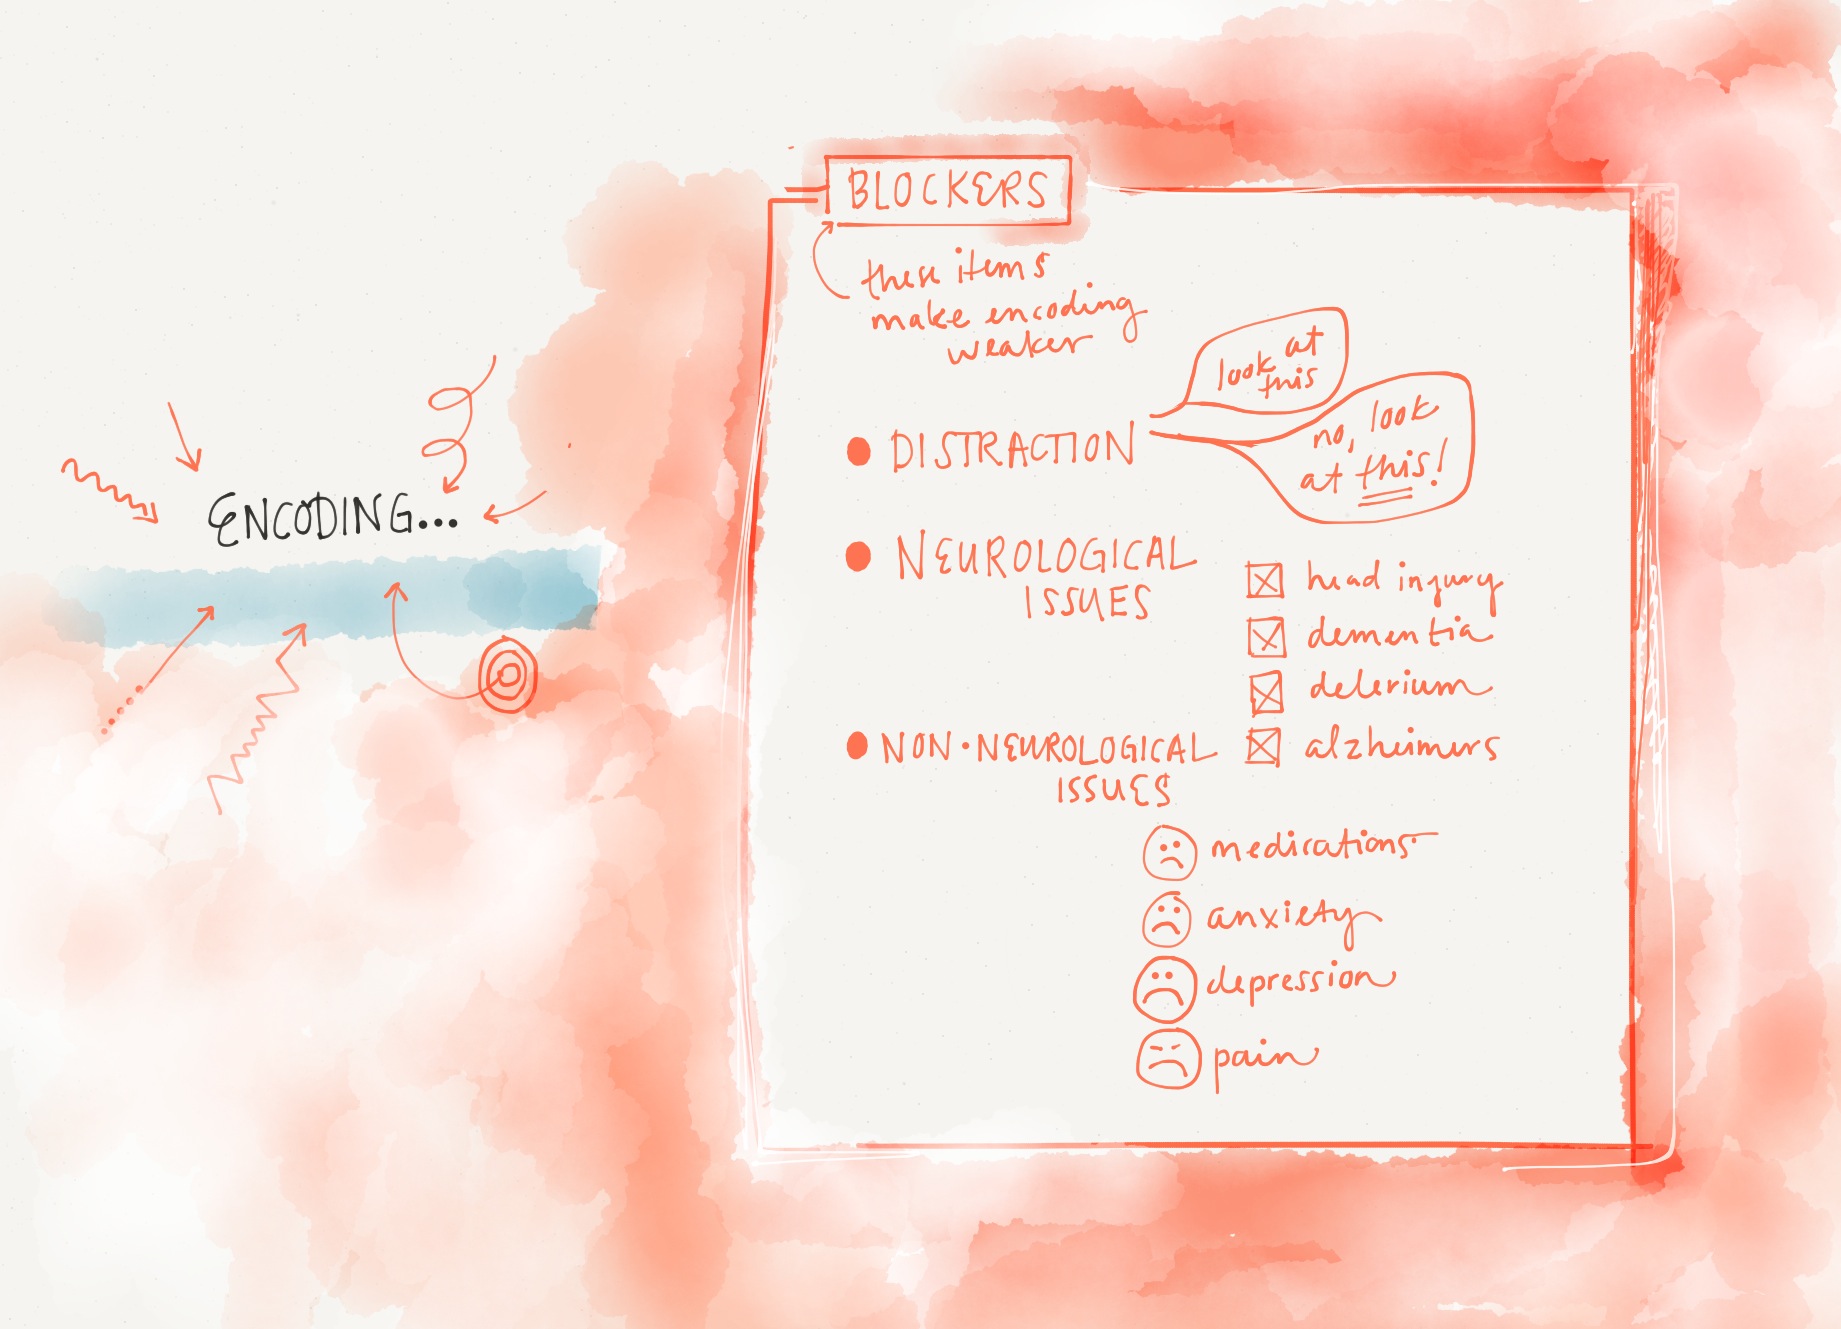 ENCODING...
BLOCKERS
these items
make encoding
weaker
look at
this
no, look
at this!
● DISTRACTION
● NEUROLOGICAL
ISSUES
☒ head injury
☒ dementia
☒ delerium
☒ alzheimers
● NON·NEUROLOGICAL
ISSUES
medications
anxiety
depression
pain